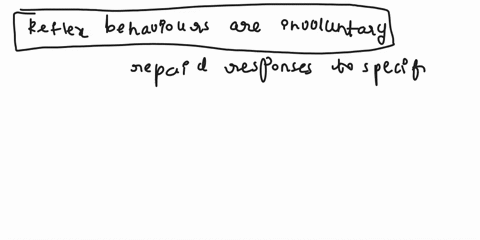 Reflex behaviours are involuntary
repaid responses to specif